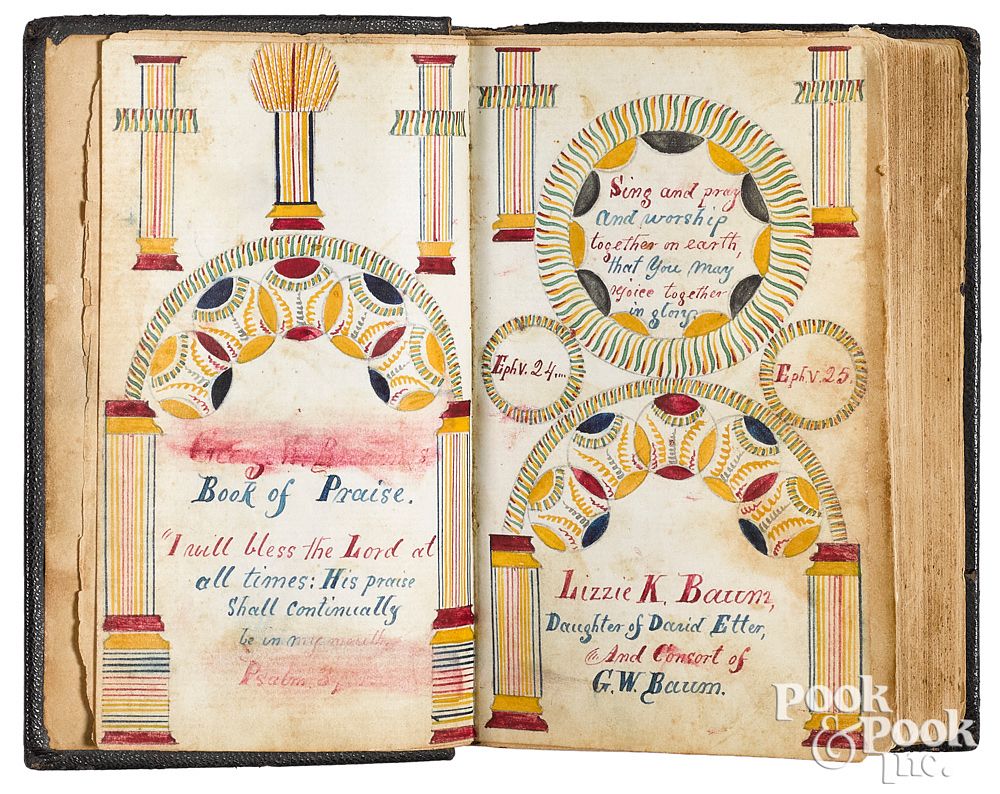 Book of Praise.
"I will bless the Lord at
all times: His praise
Shall continually
be in my mouth
Psalm
Sing and pray
and worship
together on earth,
that You may
rejoice together
in glory.
Eph V. 24....
Eph V. 25.
Lizzie K. Baum,
Daughter of David Etter,
And Consort of
G. W. Baum.
Pook
& Pook
Inc.